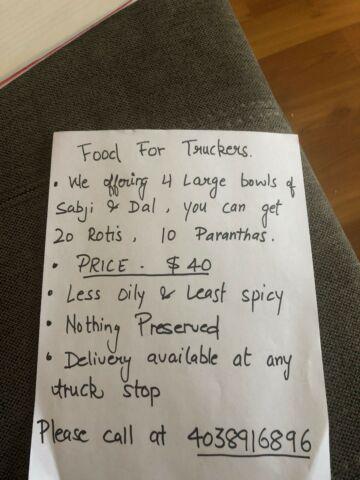 Food For Truckers.
• We offering 4 Large bowls of
Sabji & Dal, you can get
20 Rotis, 10 Paranthas.
• PRICE - $40
• Less Oily & Least spicy
• Nothing Preserved
• Delivery available at any
truck stop
Please call at 4038916896